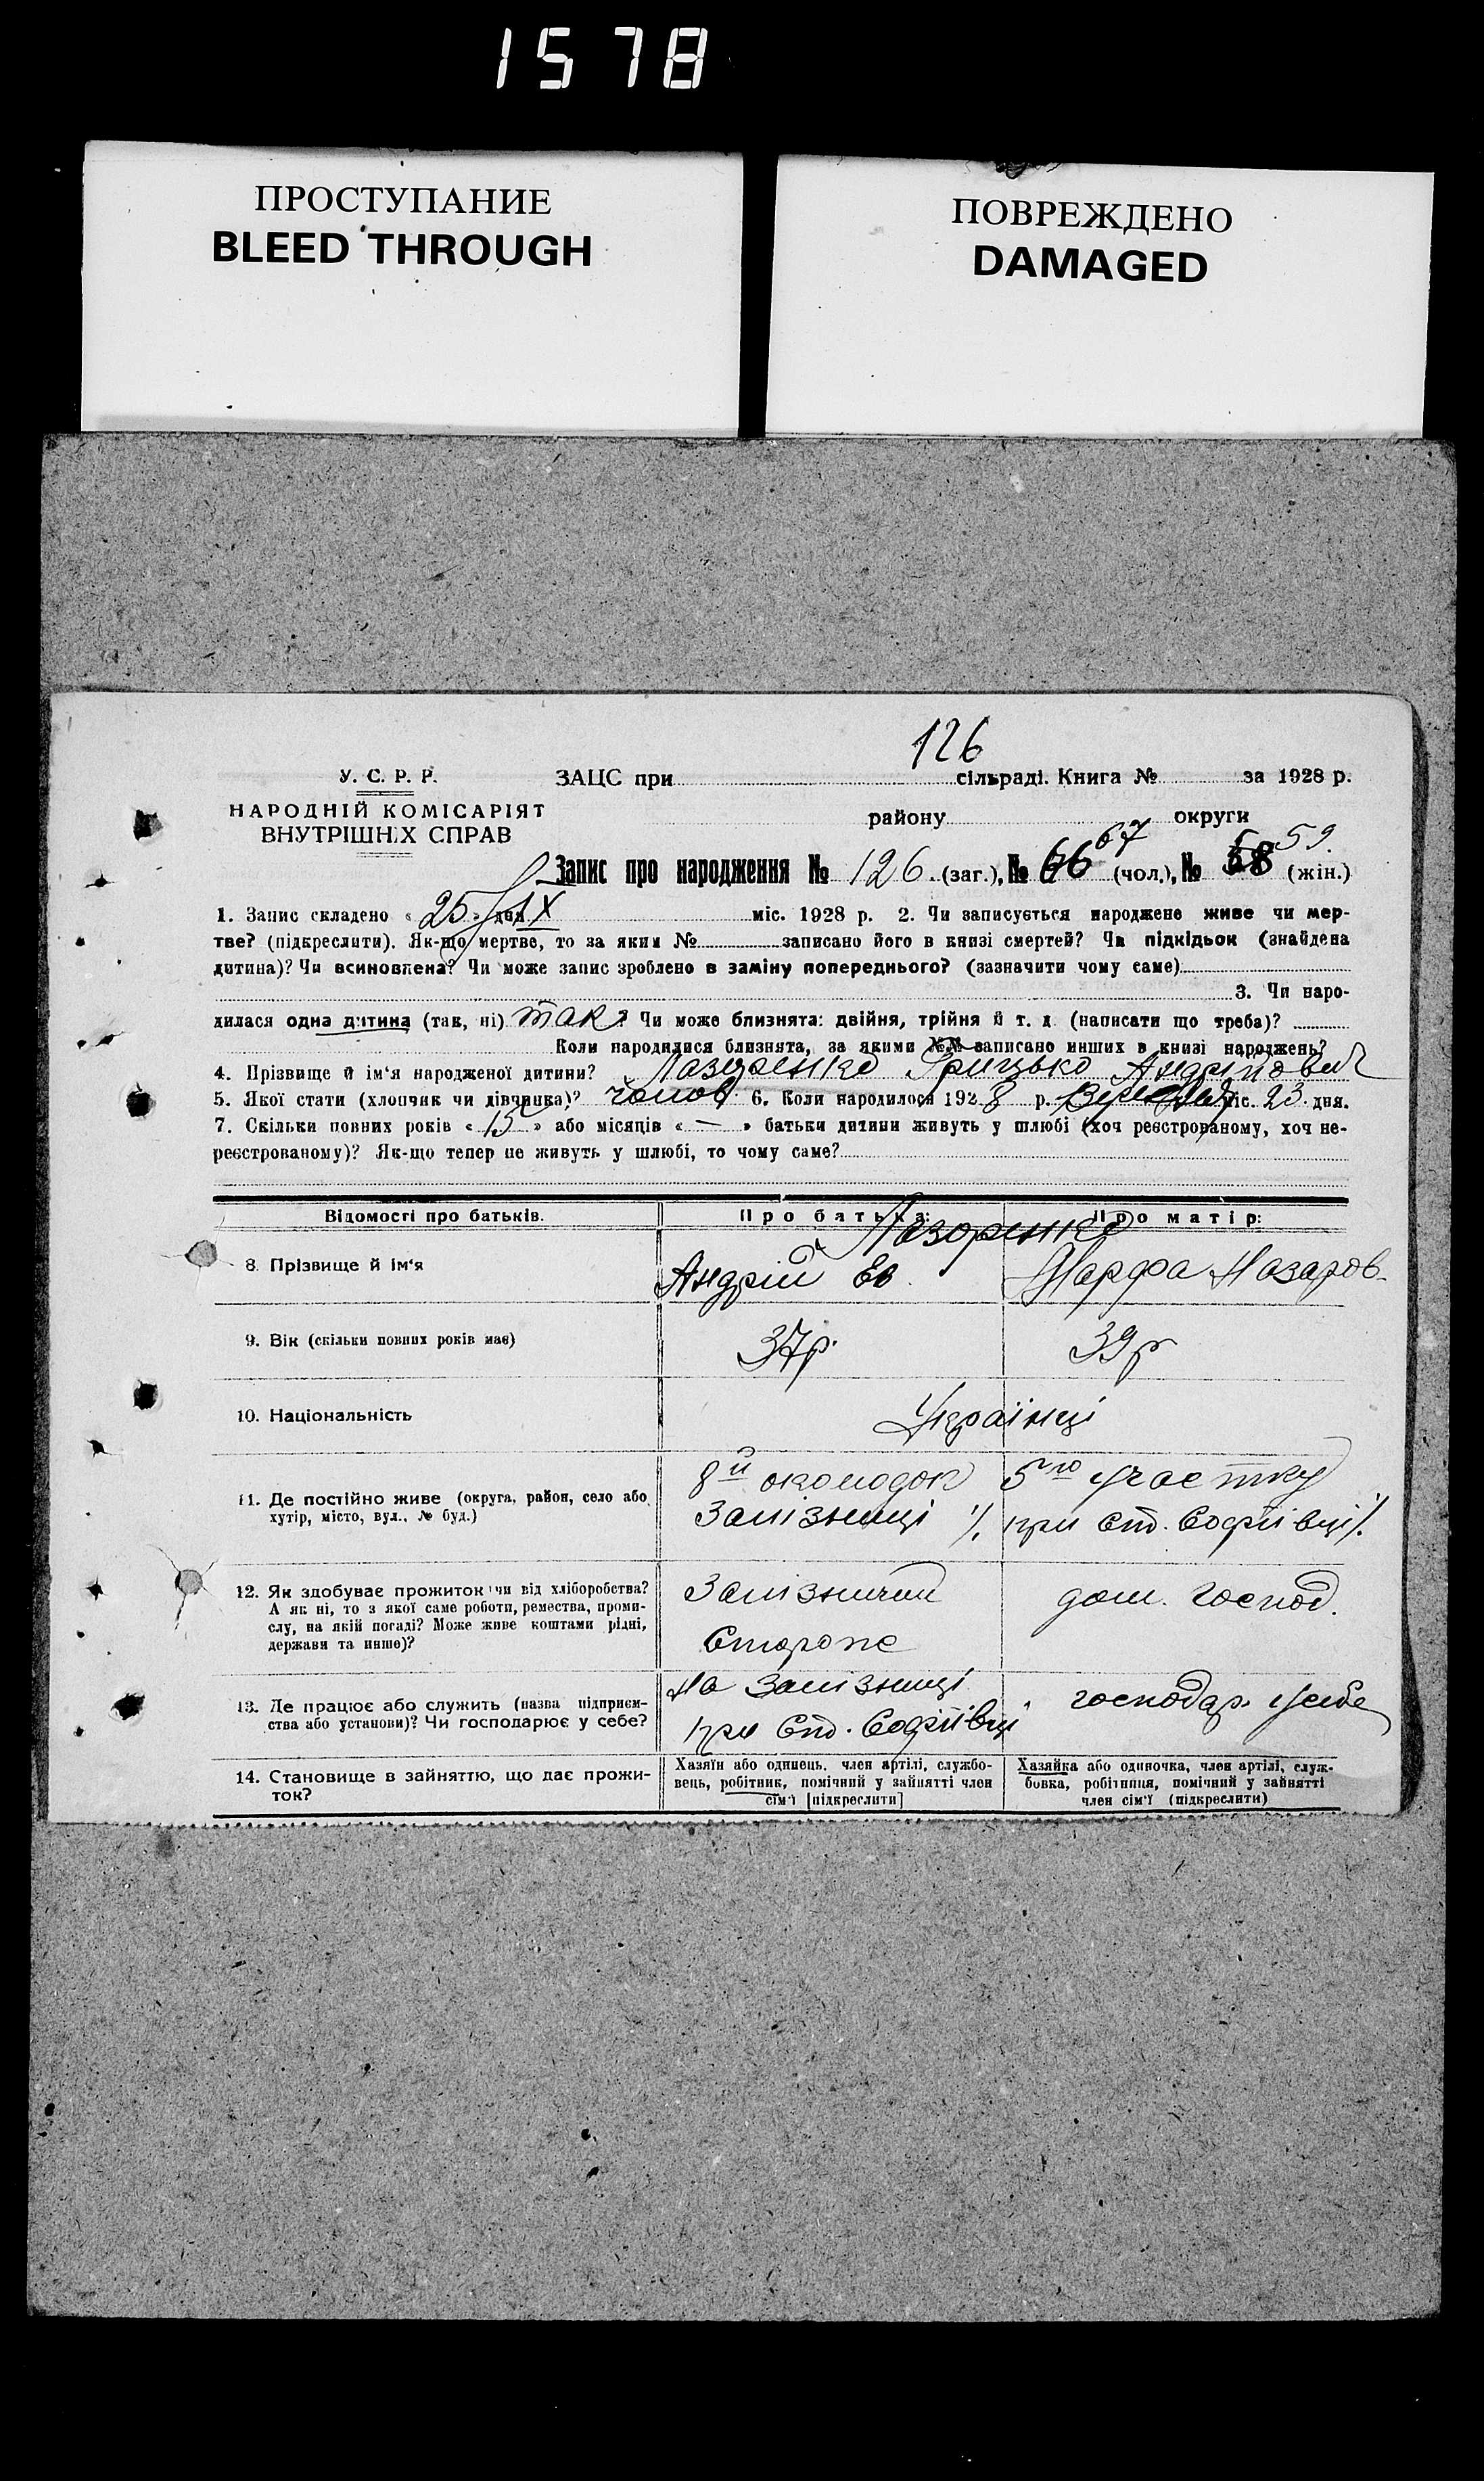 1578
ПРОСТУПАНИЕ
BLEED THROUGH
ПОВРЕЖДЕНО
DAMAGED
126
У. С. Р. Р.
ЗАЦС при сільраді. Книга № за 1928 р.
НАРОДНІЙ КОМІСАРІЯТ
ВНУТРІШНІХ СПРАВ
району округи
67 59.
Запис про народження № 126. (заг.), № 66 (чол.), № 58 (жін.)
1. Запис складено « 25 » дня IX міс. 1928 р. 2. Чи записується народжене живе чи мер-
тве? (підкреслити). Як-що мертве, то за яким № записано його в книзі смертей? Чи підкідьок (знайдена
дитина)? Чи всиновлена? Чи може запис зроблено в заміну попереднього? (зазначити чому саме)
3. Чи наро-
дилася одна дитина (так, ні) так? Чи може близнята: двійня, трійня й т. д. (написати що треба)?
Коли народилися близнята, за якими №№ записано инших в книзі народжень?
4. Прізвище й ім'я народженої дитини? Лазоренко Грицько Андрійович
5. Якої стати (хлопчик чи дівчинка)? чолов. 6. Коли народилося 1928 р. Вересня міс. 23 дня.
7. Скільки повних років « 15 » або місяців « — » батьки дитини живуть у шлюбі (хоч реєстрованому, хоч не-
реєстрованому)? Як-що тепер не живуть у шлюбі, то чому саме?
Відомості про батьків. Про батька: Про матір:
Лазоренко
8. Прізвище й ім'я Андрій Єв. Марфа Назаров.
9. Вік (скільки повних років має) 37 р. 39 р
10. Національність Українці
11. Де постійно живе (округа, район, село або хутір, місто, вул., № буд.)
8й околодок 5го участку
Залізниці при Ст. Софіївці
12. Як здобуває прожиток чи від хліборобства?
А як ні, то з якої саме роботи, ремества, проми-
слу, на якій посаді? Може живе коштами рідні,
держави та инше)?
Залізничний дом. господ.
Сторож
13. Де працює або служить (назва підприєм-
ства або установи)? Чи господарює у себе?
На Залізниці господар. у себе
при Ст. Софіївці
14. Становище в зайняттю, що дає прожи-
ток?
Хазяїн або одинець, член артілі, службо-
вець, робітник, помічний у зайнятті член
сім'ї [підкреслити]
Хазяйка або одиночка, член артілі, служ-
бовка, робітниця, помічний у зайнятті
член сім'ї (підкреслити)